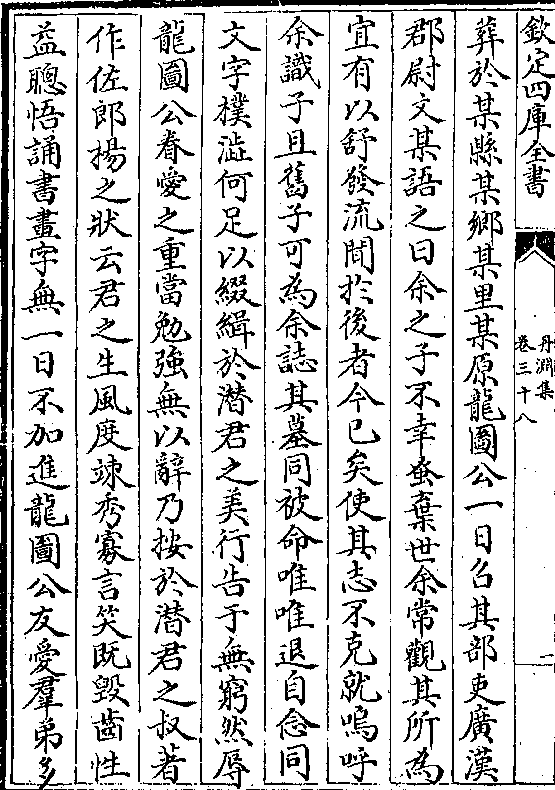 欽定四庫全書
丹淵集
卷三十八
葬於某縣某鄉某里某原龍圖公一日召其部吏廣漢
郡尉文某語之曰余之子不幸蚤棄世余常觀其所為
宜有以舒發流聞於後者今已矣使其志不克就嗚呼
余識子且舊子可為余誌其墓同被命唯唯退自念同
文字樸澁何足以綴緝於潛君之美行告于無窮然辱
龍圖公眷愛之重當勉強無以辭乃按於潛君之叔著
作佐郎楊之狀云君之生風度竦秀寡言笑既毀齒性
益聰悟誦書畫字無一日不加進龍圖公友愛羣弟多